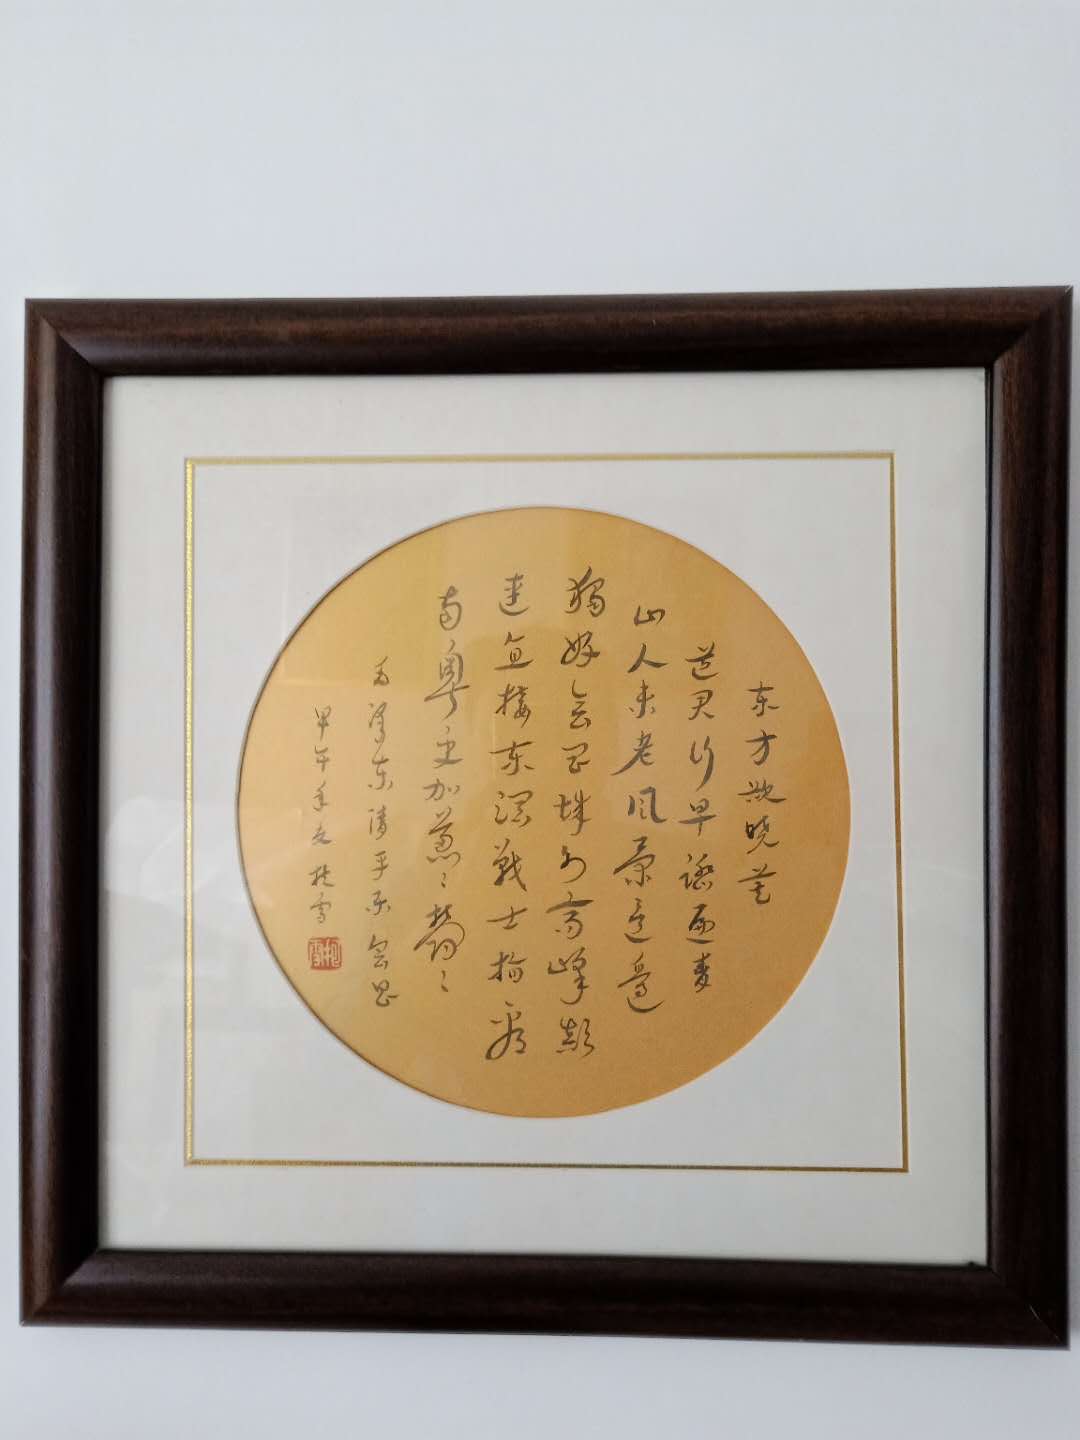 东方欲晓莫
道君行早踏遍青
山人未老风景这边
独好会昌城外高峰颠
连直接东溟战士指看
南粤更加葱〻鬱〻
毛泽东清平乐会昌
甲午年夏雪